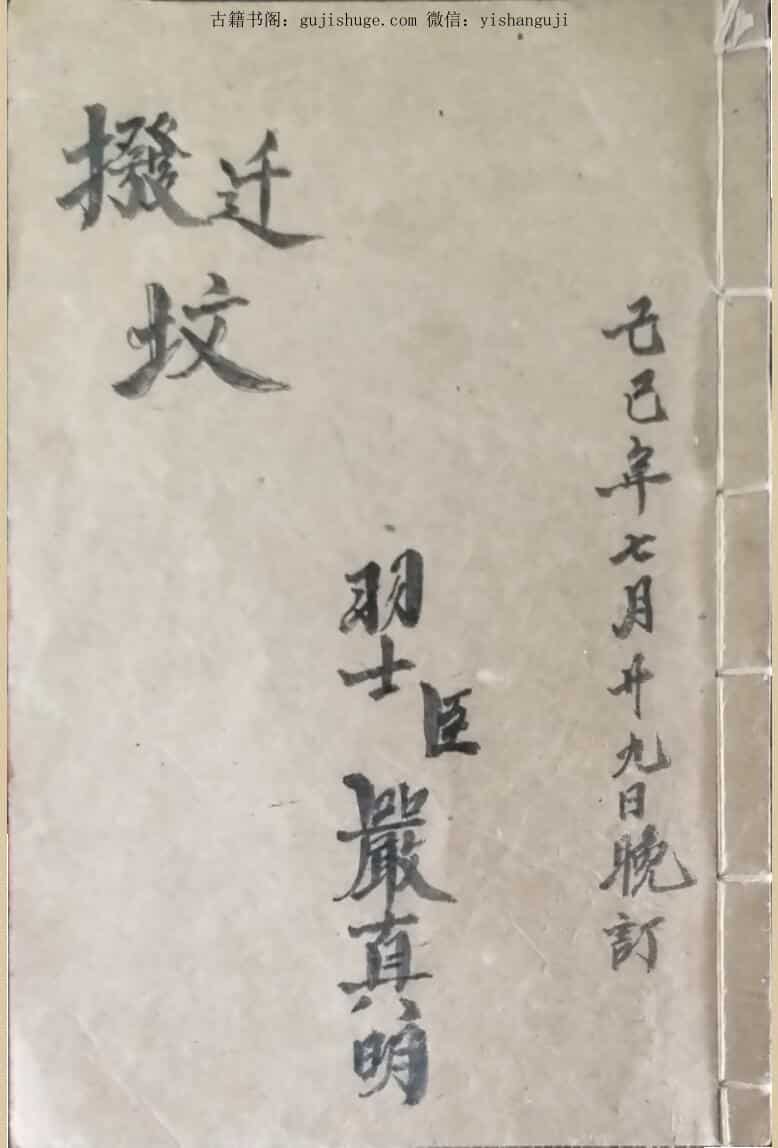 古籍书阁：gujishuge.com 微信：yishanguji
己巳年七月廿九日晚訂
羽士臣嚴真明
撥迁
坟